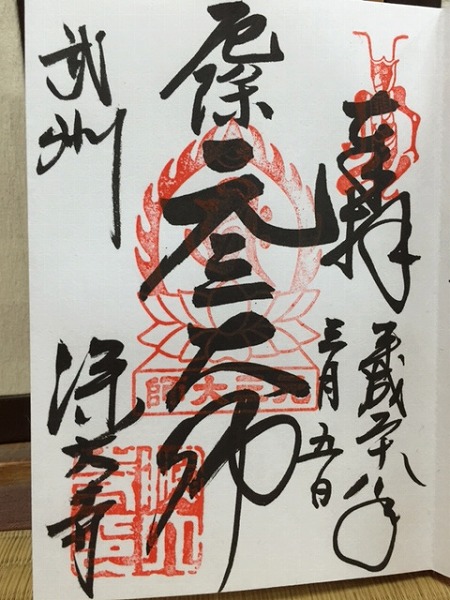 奉拝
平成二十八年
三月五日
厄除
元三大師
師大三元
武州
深大寺